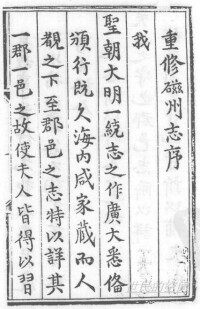 重修磁州志序
我
聖朝大明一統志之作廣大悉俻
頒行既久海內咸家藏而人
覩之下至郡邑之志特以詳其
一郡一邑之故使夫人皆得以習